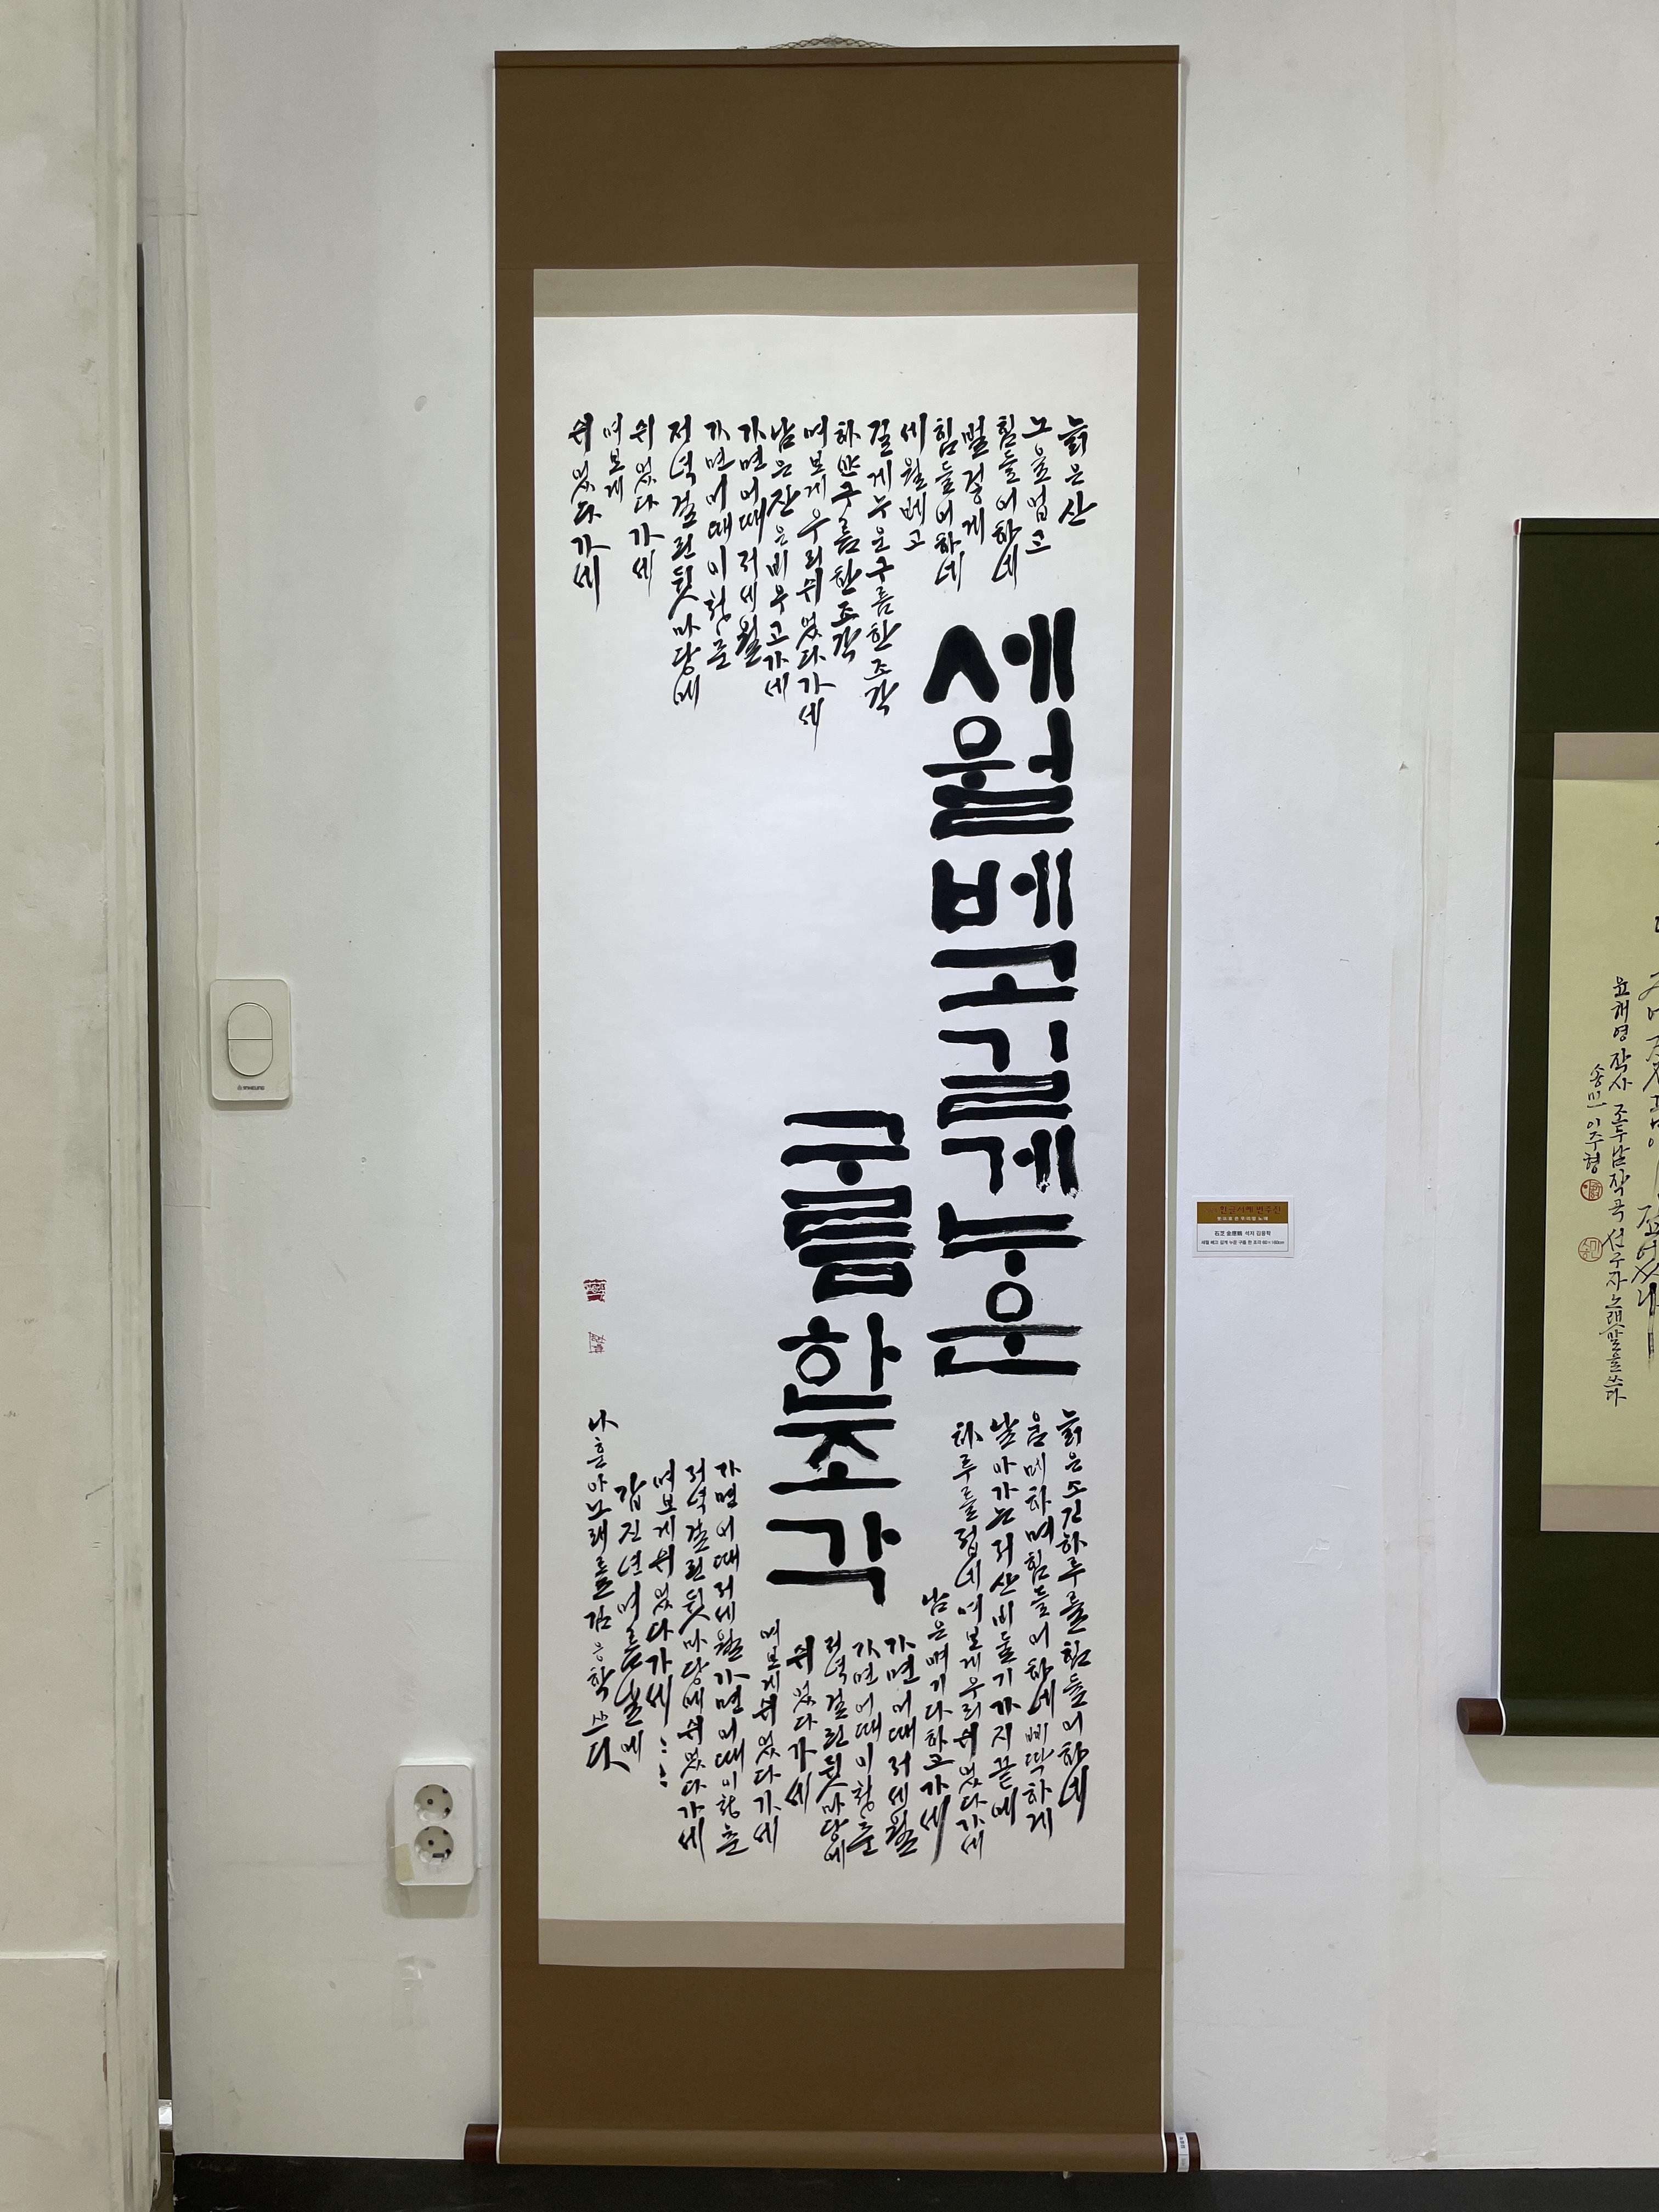 늙은 산
노을 업고
힘들어 하네
벌겋게
힘들어 하네
세월 베고
길게 누운 구름 한 조각
하얀 구름 한 조각
여보게 우리 쉬었다 가세
남은 잔은 비우고 가세
가면 어때 저 세월
가면 어때 이 청춘
저녁 걸린 뒷마당에
쉬었다 가세
여보게
쉬었다 가세
세월 베고 길게 누운
구름 한 조각
늙은 소 긴 하루를 힘들어 하네
음메 하며 힘들어 하네 삐딱하게
날아가는 저 산비둘기 가지 끝에
하루를 접네 여보게 우리 쉬었다 가세
남은 얘기 다 하고 가세
가면 어때 저 세월
가면 어때 이 청춘
저녁 걸린 뒷마당에
쉬었다 가세
여보게 쉬었다 가세
가면 어때 저 세월 가면 어때 이 청춘
저녁 걸린 뒷마당에 쉬었다 가세
여보게 쉬었다 가세……
갑진년 여름날에
나훈아 노래를 김응학 쓰다
한글서예 변주전
石芝 金應鶴 석지 김응학
세월 베고 길게 누운 구름 한 조각 60×160cm
윤해영 작사 조두남 작곡 선구자 노랫말을 쓰다
송민 이주형